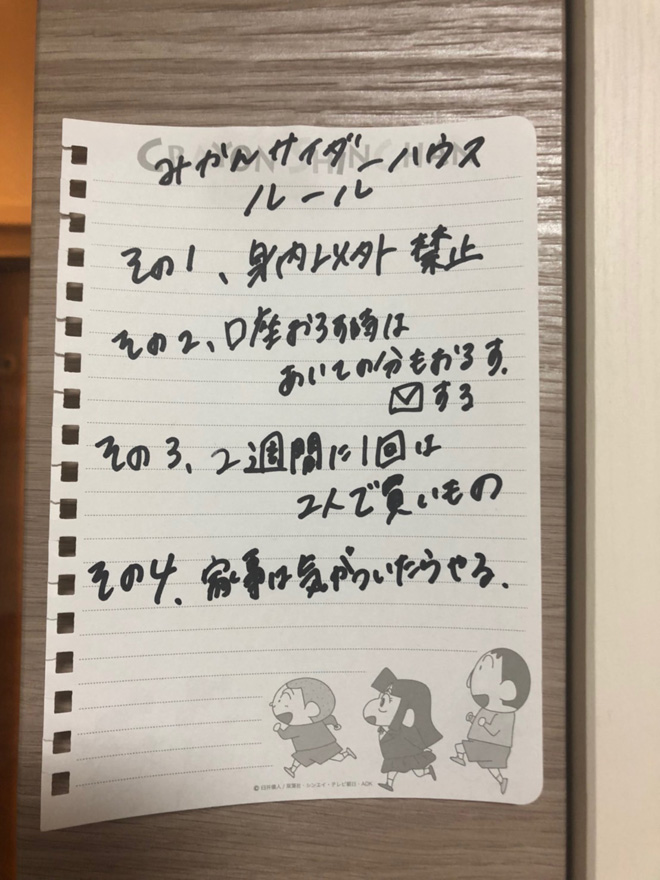 CRAYON SHINCHAN
みかんサイダーハウス
ルール
その1、身内以外禁止
その2、口座おろす時は
あいての分もおろす.
する
その3、2週間に1回は
2人で買いもの
その4、家事は気がついたらやる.
© 臼井儀人/双葉社・シンエイ・テレビ朝日・ADK